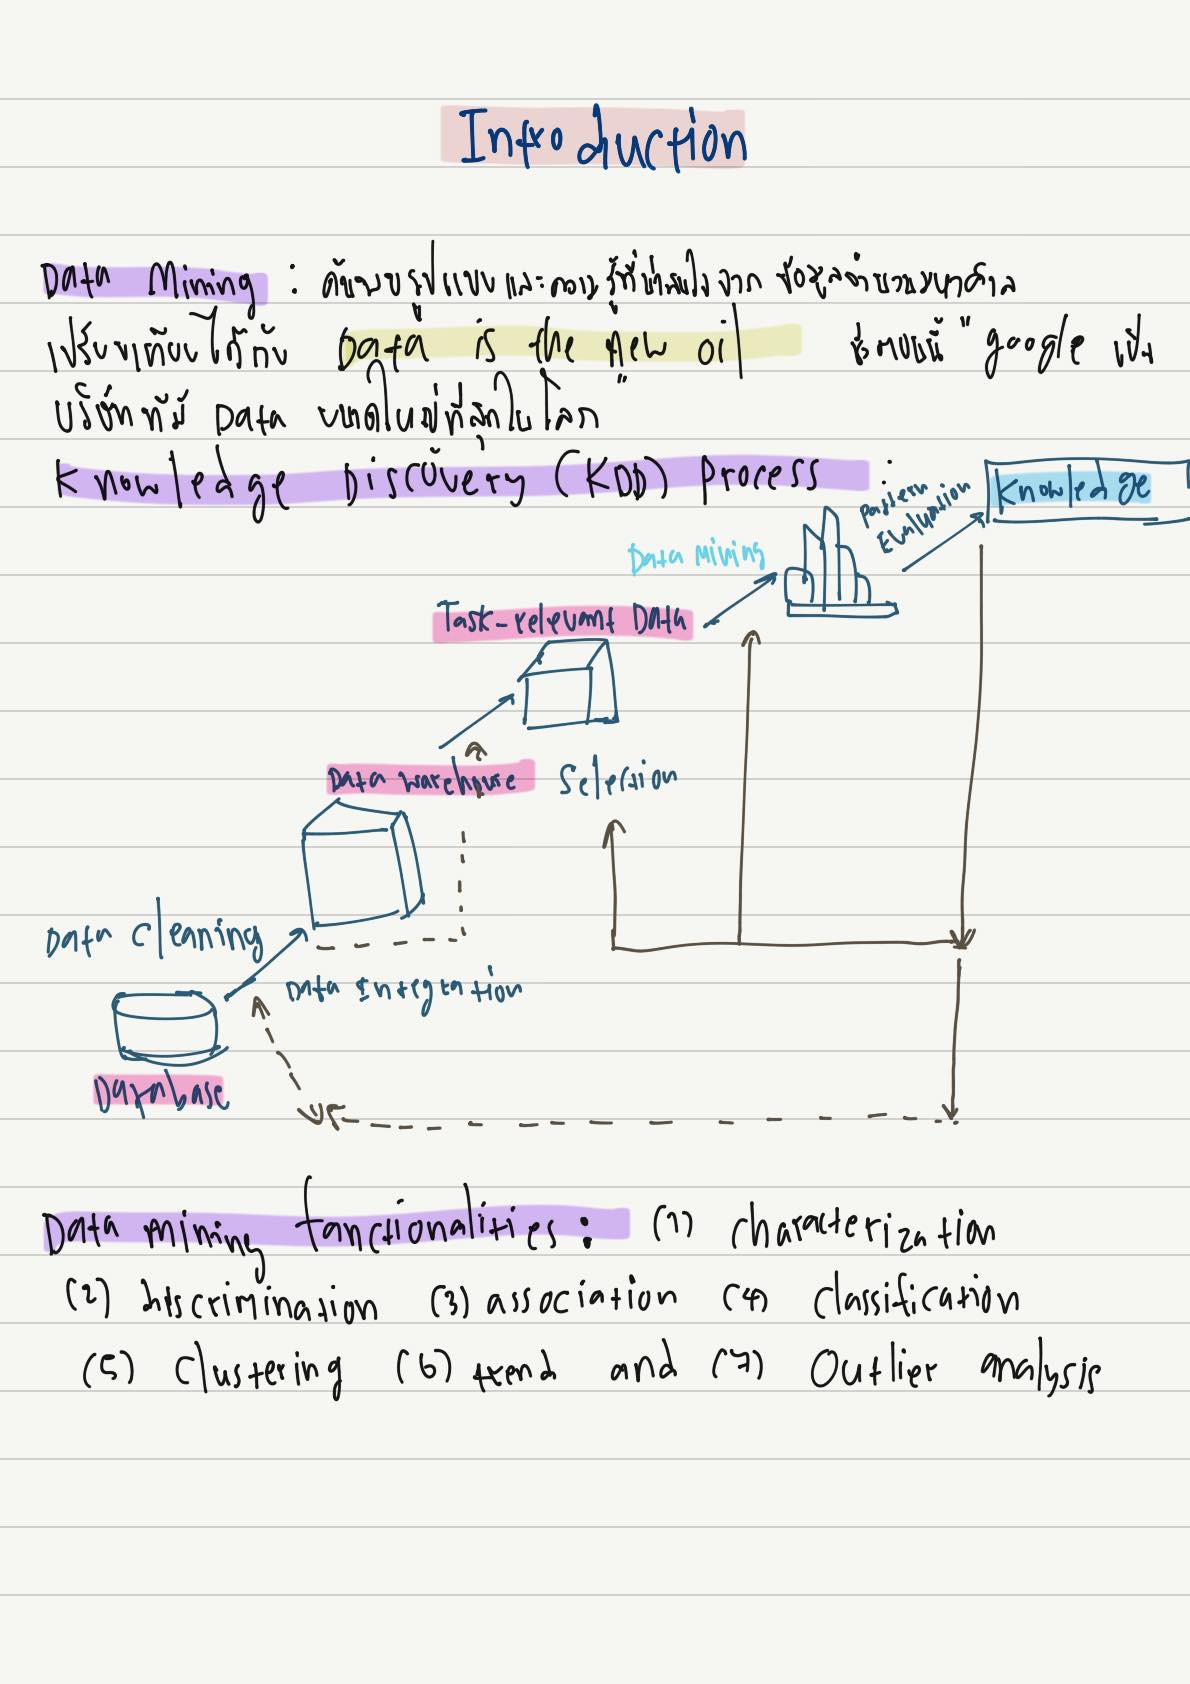 Introduction
Data Mining : ค้นพบรูปแบบและความรู้ที่น่าสนใจจาก ข้อมูลจำนวนมหาศาล
เปรียบเทียบได้กับ Data is the new oil ซึ่งตอนนี้ "google เป็น
บริษัทที่มี Data ขนาดใหญ่ที่สุดในโลก"
Knowledge Discovery (KDD) Process :
Knowledge
Pattern
Evaluation
Data Mining
Task-relevant Data
Data warehouse Selection
Data Cleaning
Data Integration
Database
Data mining functionalities: (1) characterization
(2) discrimination (3) association (4) classification
(5) Clustering (6) trend and (7) Outlier analysis